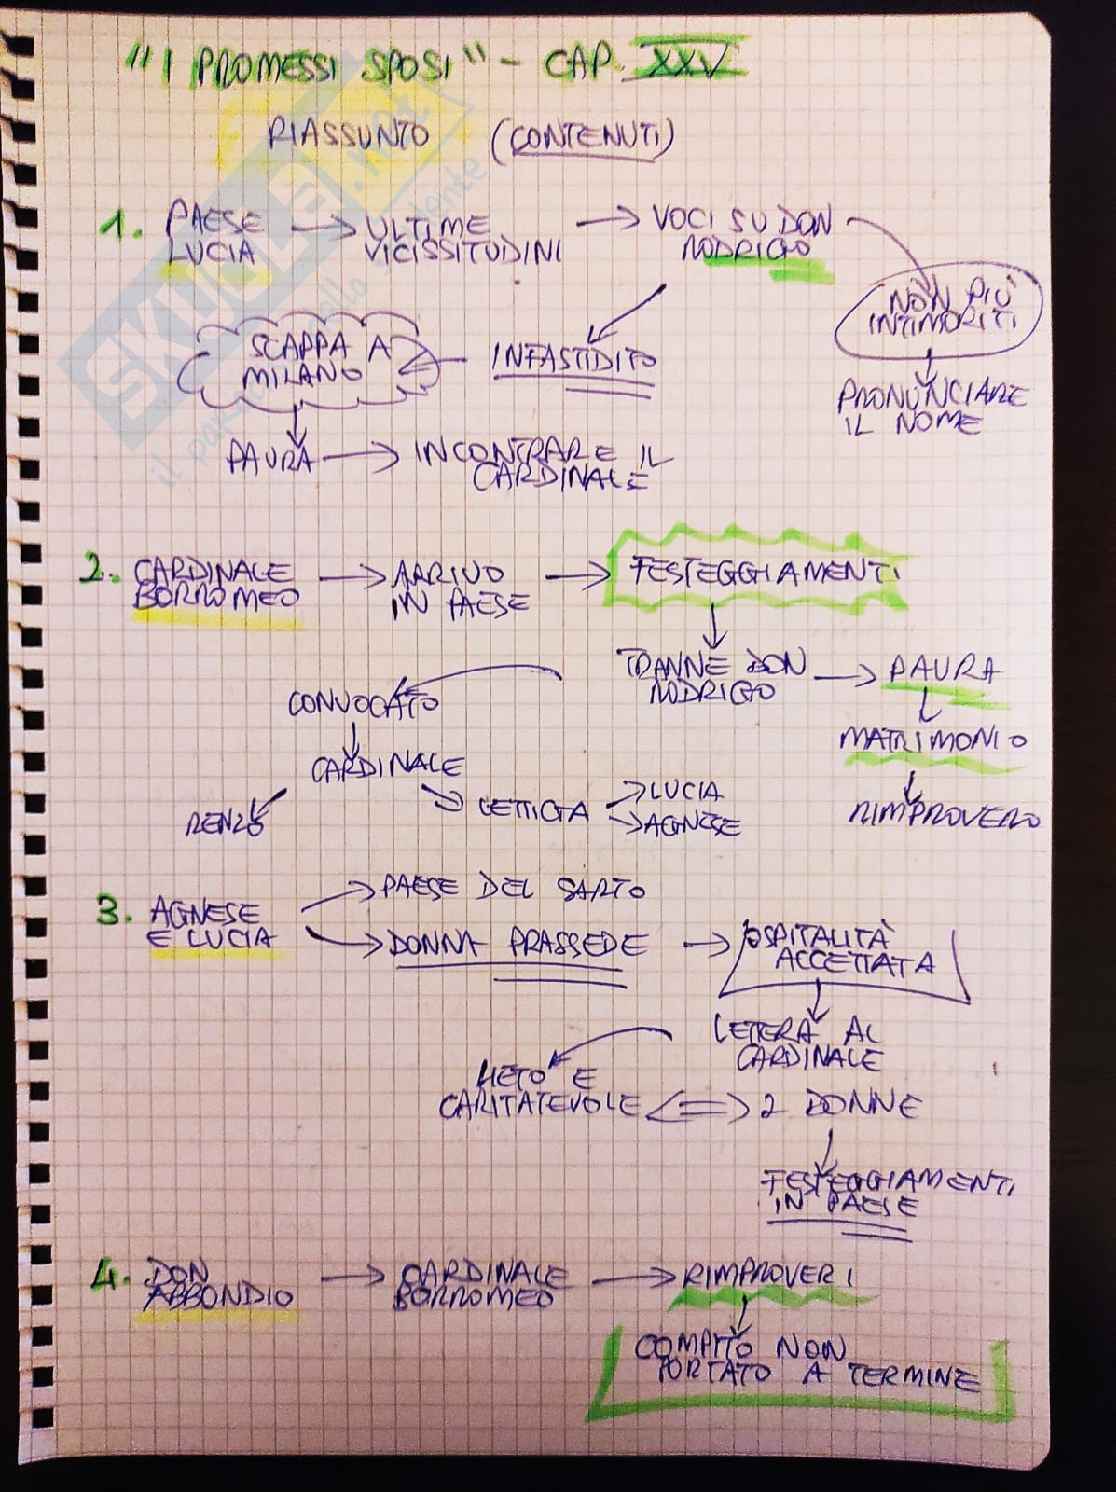 "I PROMESSI SPOSI" - CAP. XXV
RIASSUNTO (CONTENUTI)
1. PAESE LUCIA → ULTIME VICISSITUDINI → VOCI SU DON RODRIGO
NON PIÙ INTIMORITI
PRONUNCIARE IL NOME
INFASTIDITO
SCAPPA A MILANO
PAURA → INCONTRARE IL CARDINALE
2. CARDINALE BORROMEO → ARRIVO IN PAESE → FESTEGGIAMENTI
TRANNE DON RODRIGO → PAURA
MATRIMONIO
RIMPROVERO
CONVOCATO
CARDINALE
RENZO
LETTIGA → LUCIA
→ AGNESE
3. AGNESE E LUCIA → PAESE DEL SARTO
→ DONNA PRASSEDE → OSPITALITÀ ACCETTATA
LETERA AL CARDINALE
LIETO E CARITATEVOLE <=> 2 DONNE
FESTEGGIAMENTI IN PAESE
4. DON ABBONDIO → CARDINALE BORROMEO → RIMPROVERI
COMPITO NON PORTATO A TERMINE
SKUOLA.net